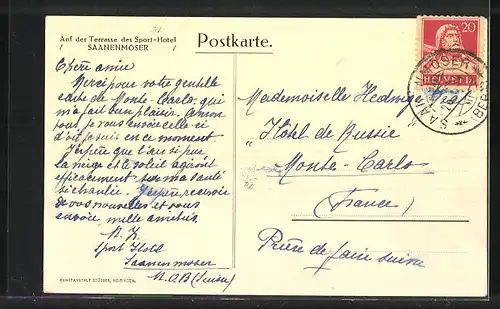 Auf der Terrasse des Sport-Hotel
/ SAANENMÖSER /
Postkarte.
20
HELVETIA
Chère amie
Merci pour votre gentille
carte de Monte-Carlo, qui
m'a fait bien plaisir. A mon
tour, je vous envoie celle-ci
d'où je suis en ce moment.
J'espère que l'air si pur
la neige et le soleil agiront
efficacement sur ma santé
J'espère recevoir
de vos nouvelles et vous
envoie mille amitiés
Sport Hotel
Saanenmoser
M.O.B (Suisse)
Mademoiselle Hedwige
"Hôtel de Russie
Monte-Carlo
(France)
Prière de faire suivre
KUNSTANSTALT BRÜGGER, MEIRINGEN.